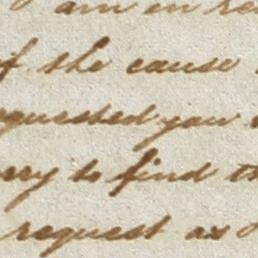 am in re
of the cause
equested you
rry to find th
request as